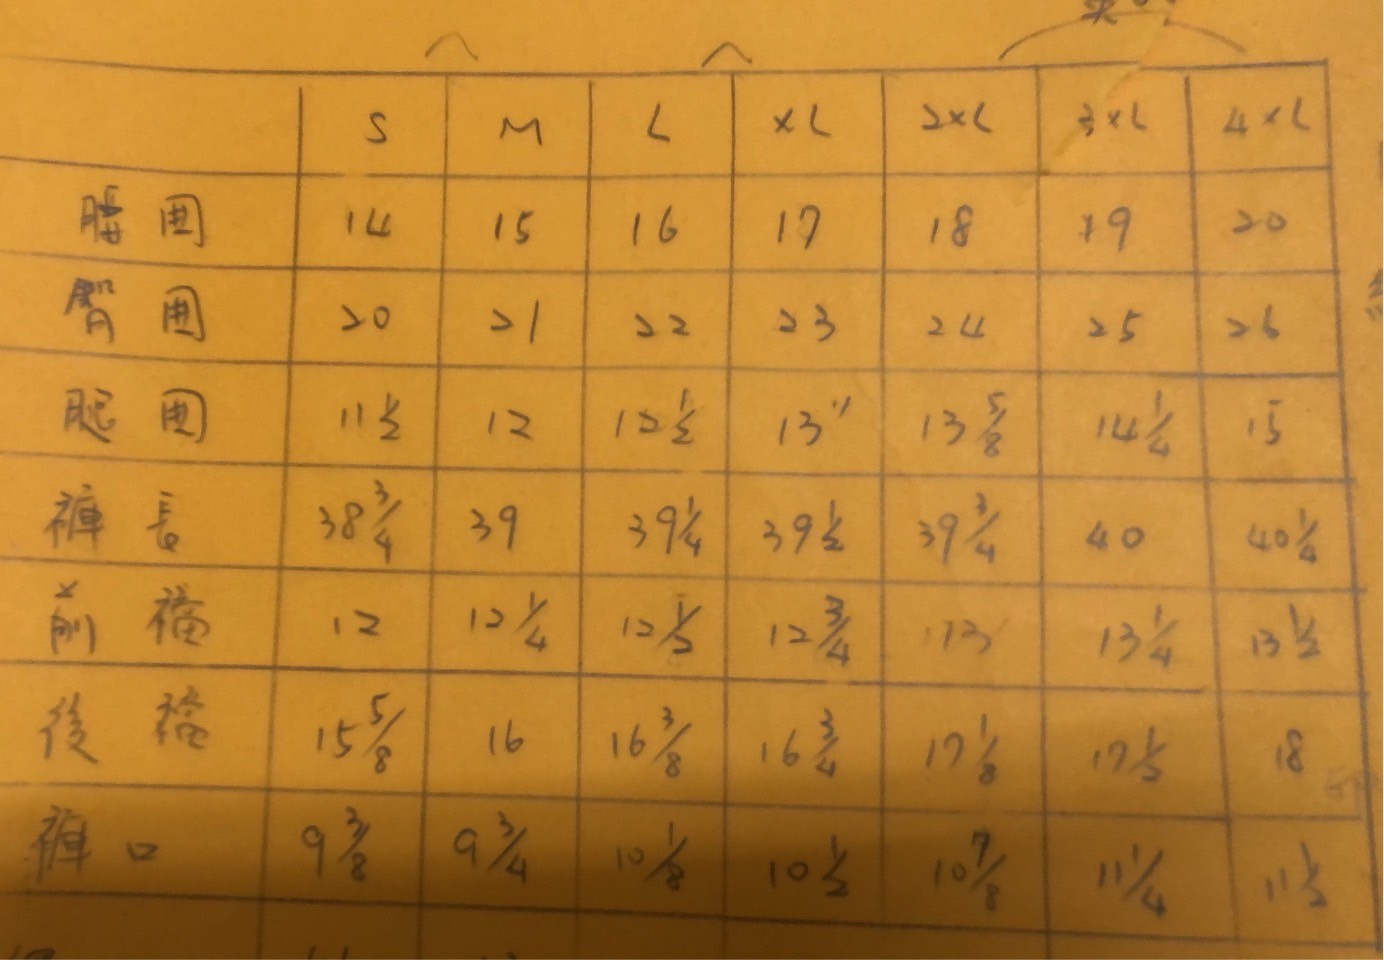 S M L XL 2XL 3XL 4XL
腰囲 14 15 16 17 18 19 20
臀囲 20 21 22 23 24 25 26
腿囲 11 1/2 12 12 1/2 13" 13 5/8 14 1/4 15
褲長 38 3/4 39 39 1/4 39 1/2 39 3/4 40 40 1/4
前襠 12 12 1/4 12 1/2 12 3/4 13 13 1/4 13 1/2
後襠 15 5/8 16 16 3/8 16 3/4 17 1/8 17 1/2 18
褲口 9 3/8 9 3/4 10 1/8 10 1/2 10 7/8 11 1/4 11 1/2